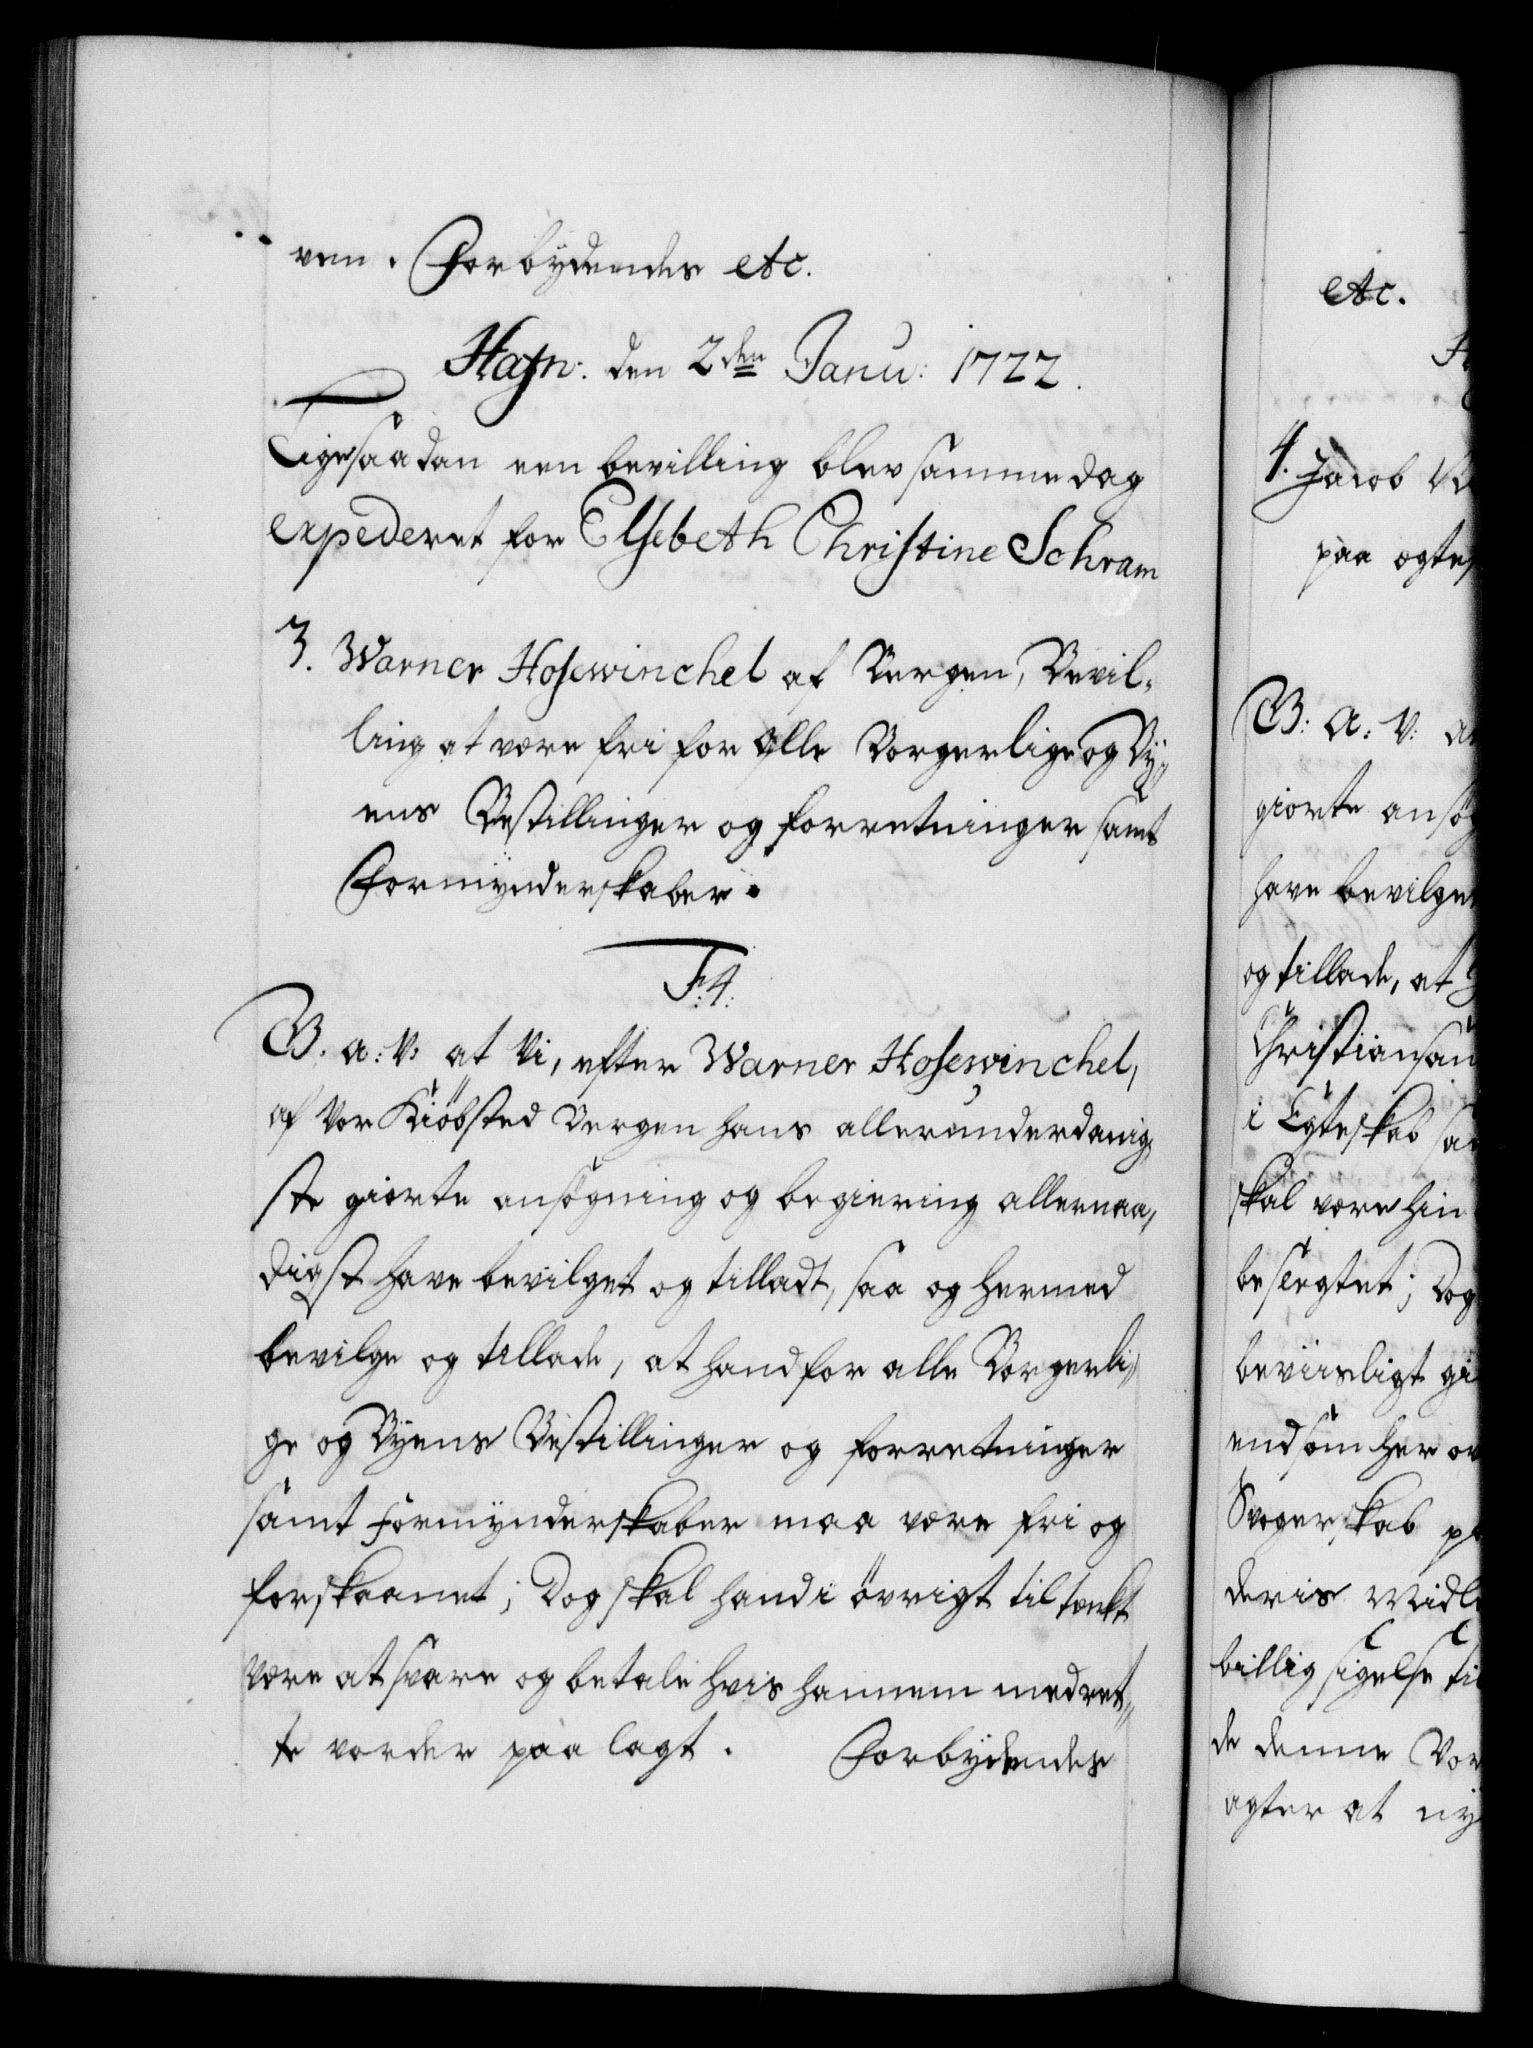 ven. Forbydendes etc.
Hafn: den 2den Janu: 1722.
Ligesaadan een bevilling blev samme dag
expederet for Elsebeth Christine Schram
3. Warner Hosewinchel af Bergen, Bevil-
ling at være fri for alle Borgerlige og By,,
ens Bestillinger og forretninger samt
Formynderskaber.
F. 4.
G. a: V: at Vi, efter Warner Hosewinchel,
af Vor Kiöbsted Bergen hans allerunderdanig,,
ste giorte ansögning og begiering allernaa,,
digst have bevilget og tilladt, saa og hermed
bevilge og tillade, at hand for alle Borgerli,,
ge og Byens Bestillinger og forretninger
samt Formynderskaber maa være fri og
forskaanet; Dog skal hand i övrigt tiltenkt
være at svare og betale hvis hannem med ret,,
te vorder paa lagt. Forbydendes
etc.
4. Jacob
paa egtes
G: A: V: a
giorte ansög
have bevilget
og tillade, at
Christiansan
i Egteskab sa
skal være hin
beslegtet; Dog
beviisligt gi
end som her ov
Svogerskab p
deris Midl
billig sigelse til
de denne Vor
agter at ny